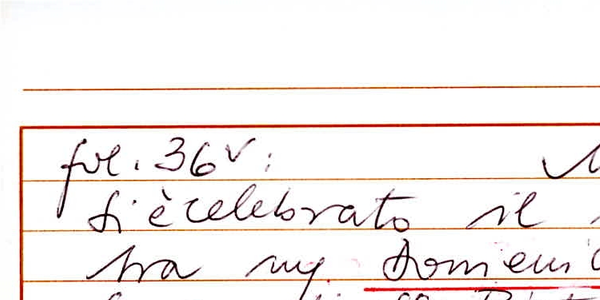 fol. 36v:
si è celebrato il
tra mg. Domenic